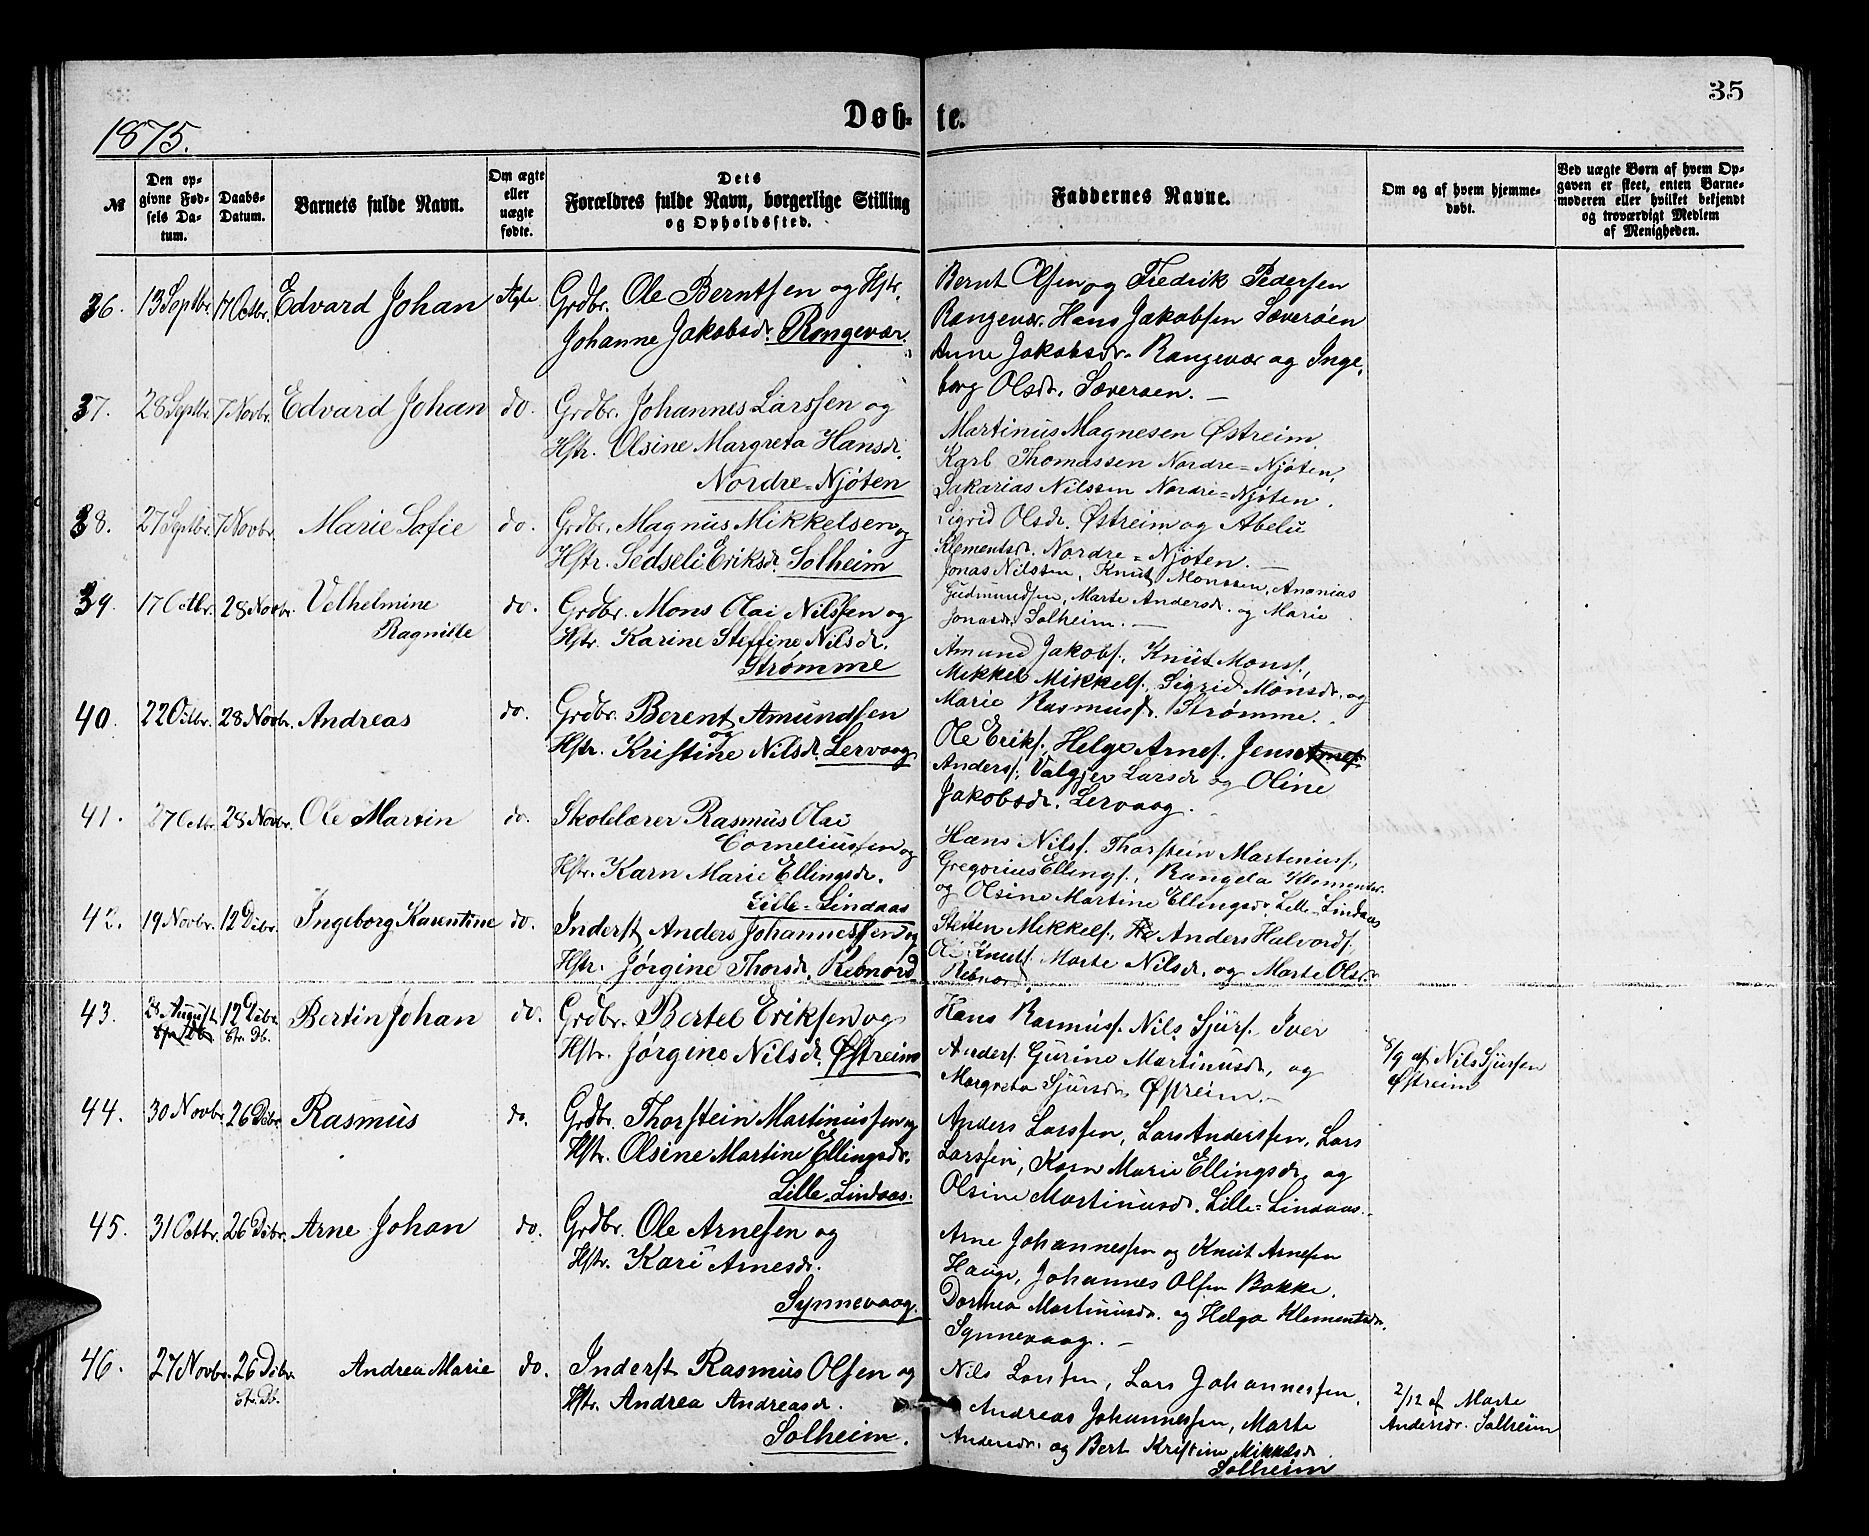 35
1875.
Døb- te.
№
Den op-
givne Fød-
sels Da-
tum.
Daabs-
Datum.
Barnets fulde Navn.
Om ægte
eller
uægte
fødte.
Dets
Forældres fulde Navn, borgerlige Stilling
og Opholdssted.
Faddernes Navne.
Om og af hvem hjemme-
døbt.
Ved uægte Børn af hvem Op-
gaven er skeet, enten Barne-
moderen eller hvilket bekjendt
og troværdigt Medlem
af Menigheden.
36. 13 Septbr. 17 Octbr. Edvard Johan Ægte
Grdbr. Ole Berntsen og Hstr.
Johanne Jakobsdr. Rongevær.
Bernt Olsen og Fredrik Pedersen
Rongevær. Hans Jakobsen Sæverøen
Anne Jakobsdr. Rangevær og Inge-
borg Olsdr. Sæverøen. —
37. 28 Septbr. 7 Novbr. Edvard Johan do.
Grdbr. Johannes Larssen og
Hstr. Olsine Margreta Hansdr.
Nordre-Njøten
Martinus Magnesen Østreim
Karl Thomassen Nordre-Njøten,
Sakarias Nilssen Nordre-Njøten.
Sigrid Olsdr. Østreim og Abelu
Klementsdr. Nordre-Njøten. —
38. 27 Septbr. 7 Novbr. Marie Sofie do.
Grdbr. Magnus Mikkelsen og
Hstr. Sedseli Eriksdr. Solheim
Jonas Nilssen, Knut Monssen, Ananias
Gudmundsen, Marte Andersdr. og Marie
Jonasdr. Solheim. —
39. 17 Octbr. 28 Novbr. Velhelmine
Ragnilte do.
Grdbr. Mons Olai Nilssen og
Hstr. Karine Steffine Nilsdr.
Strømme
Amund Jakobs., Knut Mons.,
Mikkel Mikkels., Sigrid Monsdr. og
Marie Rasmusdr. Strømme.
40. 22 Octbr. 28 Novbr. Andreas do.
Grdbr. Berent Amundsen
og
Hstr. Kristine Nilsdr. Lervaag
Ole Eriks. Helge Arnes. Jens Arnes.
Anders., Valgjer Larsdr. og Oline
Jakobsdr. Lervaag.
41. 27 Octbr. 28 Novbr. Ole Martin do.
Skolelærer Rasmus Olai
Corneliussen og
Hstr. Karn Marie Ellingsdr.
Lille-Lindaas
Hans Nils. Thorstein Martinius.,
Gregorius Ellings., Rangela Klementsdr.
og Olsine Martine Ellingsdr. Lille-Lindaas
42. 19 Novbr. 12 Dcbr. Ingeborg Karentine do.
Inderst Anders Johannessen og
Hstr. Jørgine Thorsdr. Rebnord
Steffen Mikkels., Anders Halvords.,
Knuts. Marte Nilsdr. og Marte Olsdr.
Rebnord.
43. 28 August 12 Dcbr.
Str. Db. Bertin Johan do.
Grdbr. Bertel Eriksen og
Hstr. Jørgine Nilsdr. Østreim
Hans Rasmus. Nils Sjurs. Iver
Anders. Gurine Martinusdr. og
Margreta Sjursdr. Østreim. —
8/9 af Nils Sjursen
Østreim
44. 30 Novbr. 26 Dcbr. Rasmus do.
Grdbr. Thorstein Martinussen og
Hstr. Olsine Martine Ellingsdr.
Lille-Lindaas.
Anders Larssen, Lars Anderssen, Lars
Larssen, Karn Marie Ellingsdr. og
Olsine Martinusdr. Lille-Lindaas.
45. 31 Octbr. 26 Dcbr. Arne Johan do.
Grdbr. Ole Arnesen og
Hstr. Kari Arnesdr.
Synnevaag.
Arne Johannessen og Knut Arnesen
Hauge, Johannes Olsen Bakke.
Dorthea Martinusdr. og Helga Klementsdr.
Synnevaag. —
46. 27 Novbr. 26 Dcbr.
Str. Db. Andrea Marie do.
Inderst Rasmus Olsen og
Hstr. Andrea Andreasdr.
Solheim.
Nils Larssen, Lars Johannessen,
Andreas Johannessen, Marte
Andersdr. og Bert Kristine Mikkelsdr.
Solheim
2/12 af Marte
Andersdr. Solheim